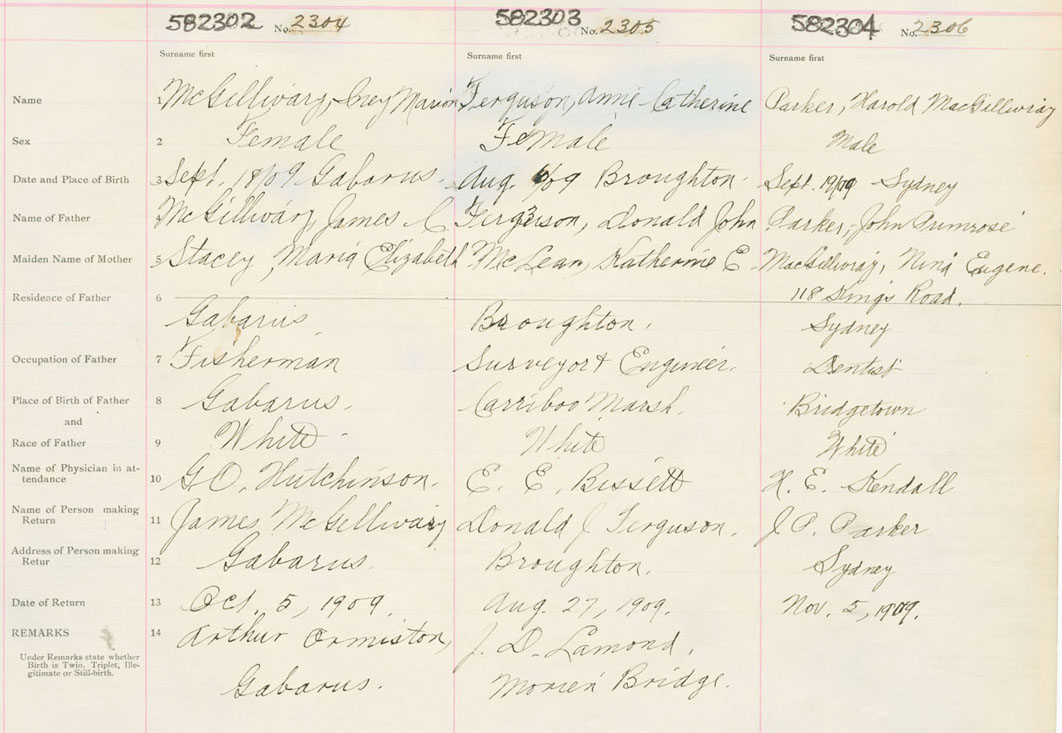 582302 No. 2304 582303 No. 2305 582304 No. 2306
Surname first Surname first Surname first
Name 1 McGillivary, Marion Ferguson, Annie Catherine Parker, Harold MacGillivray
Sex 2 Female Female Male
Date and Place of Birth 3 Sept. 18/09 Gabarus. Aug. /09 Broughton. Sept. 19/09 Sydney
Name of Father McGillivary, James C Ferguson, Donald John Parker, John Primrose
Maiden Name of Mother 5 Stacey, Maria Elizabeth McLean, Katherine E. MacGillivray, Nina Eugene.
Residence of Father 6 118 Kings Road.
Gabarus Broughton. Sydney
Occupation of Father 7 Fisherman Surveyor & Engineer. Dentist
Place of Birth of Father 8 Gabarus. Carriboo Marsh. Bridgetown
and
Race of Father 9 White White White
Name of Physician in at-
tendance 10 G.O. Hutchinson. E. E. Bissett H. E. Kendall
Name of Person making
Return 11 James McGillivary Donald J Ferguson. J. P. Parker
Address of Person making
Retur 12 Gabarus. Broughton. Sydney
Date of Return 13 Oct. 5, 1909. Aug. 27, 1909. Nov. 5, 1909.
REMARKS 14 Arthur Ormiston, J. D. Lamond.
Under Remarks state whether
Birth is Twin, Triplet, Ille-
gitimate or Still-birth.
Gabarus. Morien Bridge.